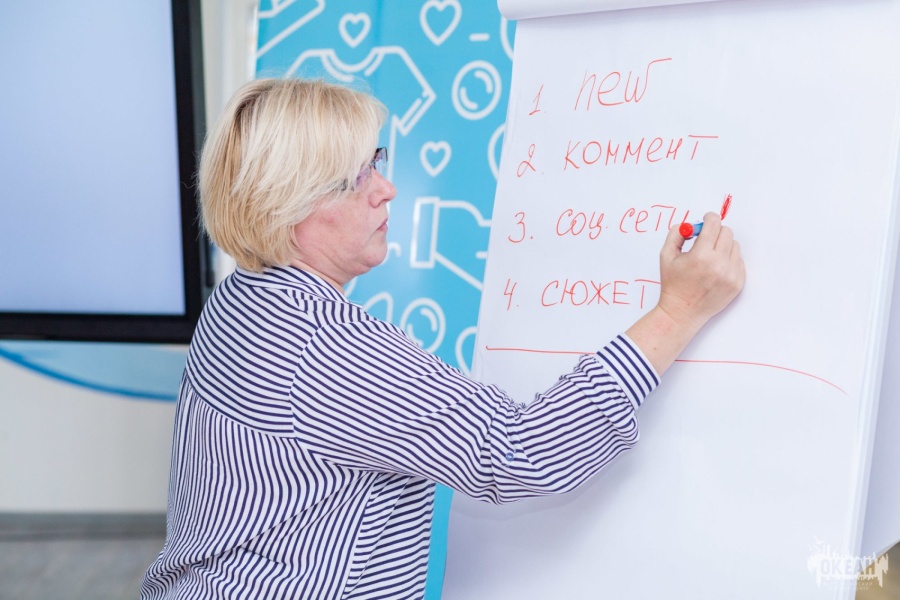 1. new
2. коммент
3. соц. сети
4. сюжет
ОКЕАН